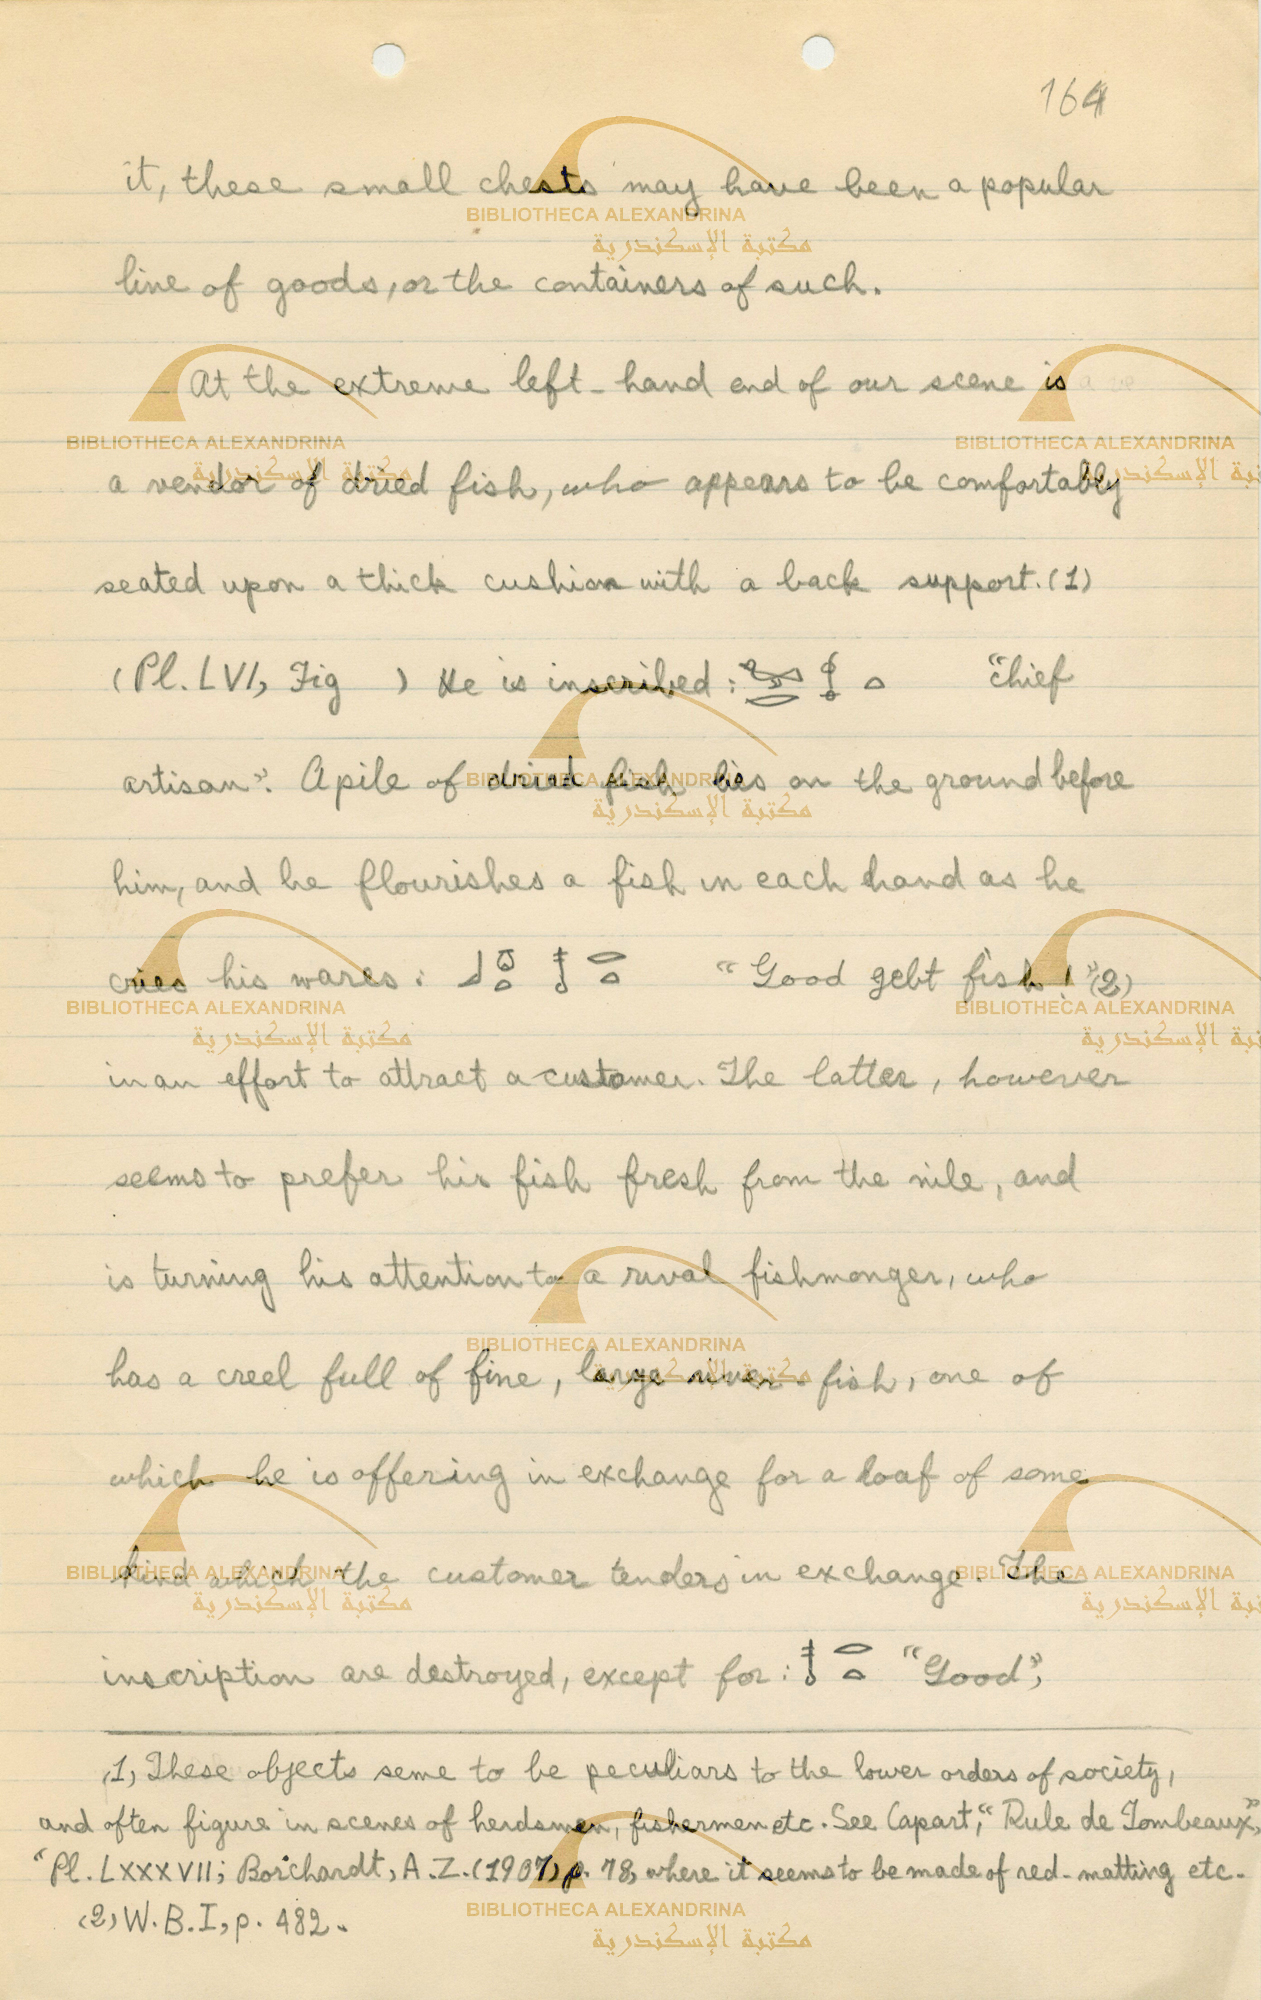 164
it, these small chests may have been a popular
line of goods, or the containers of such.
At the extreme left-hand end of our scene is
a vendor of dried fish, who appears to be comfortably
seated upon a thick cushion with a back support. (1)
(Pl. LVI, Fig ) He is inscribed : "Chief
artisan". A pile of dried fish lies on the ground before
him, and he flourishes a fish in each hand as he
cries his wares : "Good gebt fish !" (2)
in an effort to attract a customer. The latter, however
seems to prefer his fish fresh from the nile, and
is turning his attention to a rival fishmonger, who
has a creel full of fine, large river-fish, one of
which he is offering in exchange for a loaf of some
kind which the customer tenders in exchange. The
inscription are destroyed, except for : "Good",
(1) These objects seme to be peculiars to the lower orders of society,
and often figure in scenes of herdsmen, fishermen etc. See Capart, "Rule de Tombeaux",
"Pl. LXXXVII; Borchardt, A.Z. (1907) p. 78, where it seems to be made of red-matting etc.
(2) W.B.I, p. 482.
BIBLIOTHECA ALEXANDRINA
مكتبة الإسكندرية